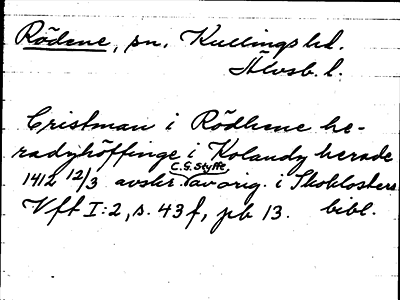 Rödene, sn. Kullings hd.
Älvsb. l.
Cristman i Rödhene he-
radzhöffinge i Kolandz herade
1412 12/3 avskr. C.G. Styffe, av orig. i Skoklosters
Vft I:2, s. 43 f, pb 13. bibl.